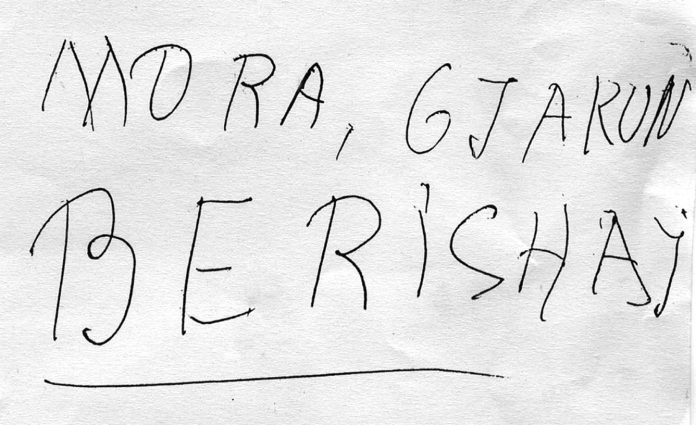 MORA, GJAKUN
BERISHAJ